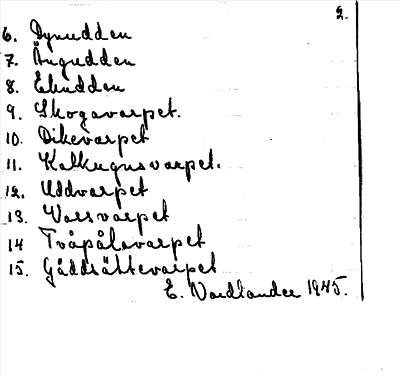 2.
6. Dynudden
7. Ängudden
8. Ekudden
9. Skogavarpet.
10. Dikevarpet
11. Kalkugnsvarpet.
12. Uddvarpet
13. Vassvarpet
14 Tvåpålavarpet
15. Gäddsättevarpet
E. Nordlander 1945.